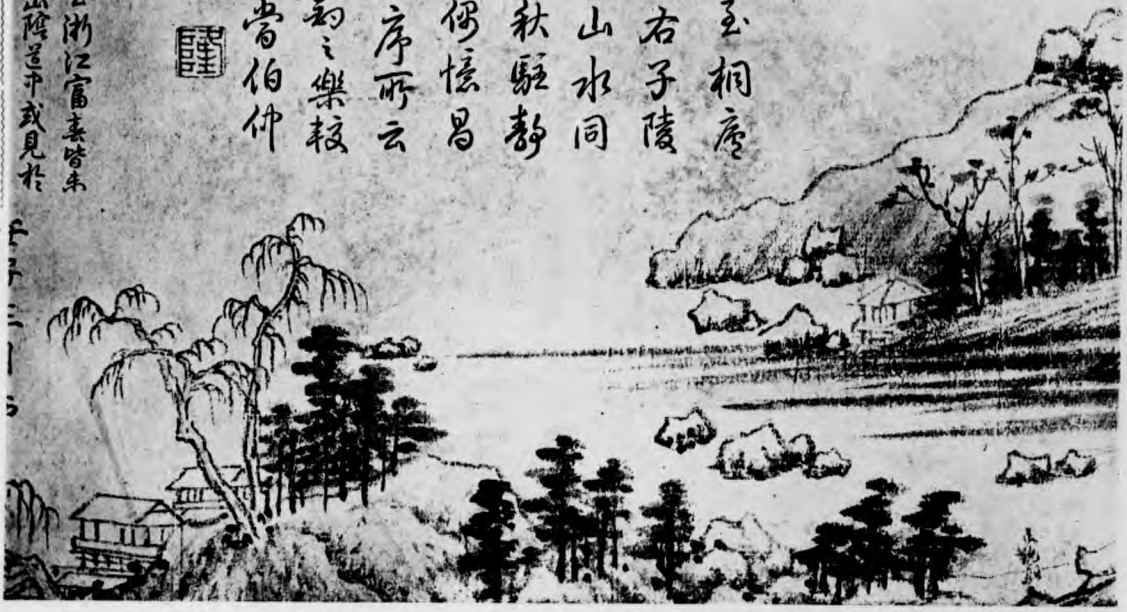 至桐廬
右子陵
山水同
秋駐静
偶憶昌
序所云
之樂較
當伯仲
隆
浙江富春皆未
山陰道中或見於